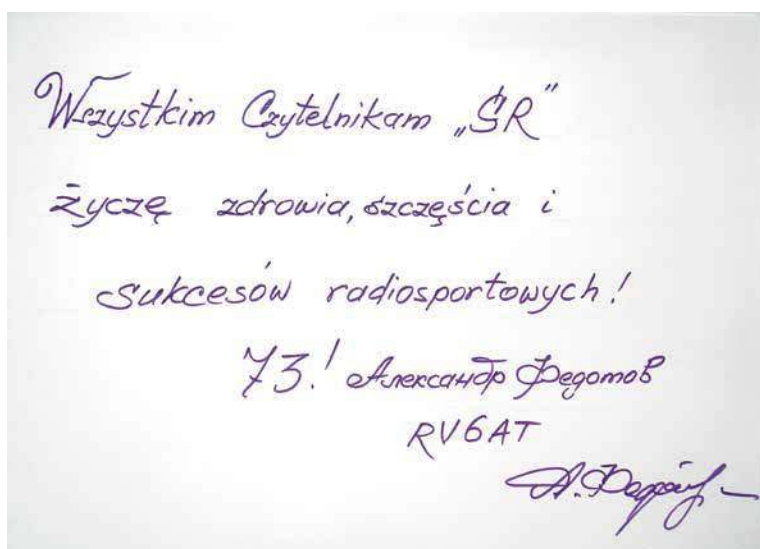 Wszystkim Czytelnikam „ŚR”
życzę zdrowia, szczęścia i
sukcesów radiosportowych!
73! Александр Федотов
RV6AT
А. Федотов